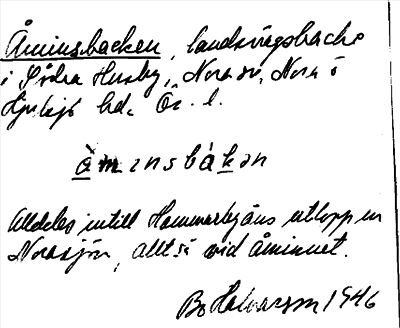 Åminnsbacken, landsvägsbacke
i Södra Husby, Nora sn, Nora o
Hjulsjö hd. Ör. l.
åmɩnsbákən
Alldeles intill Hammarbyåns utlopp ur
Norasjön, alltså vid Åminnet.
Bo Halvarson 1946